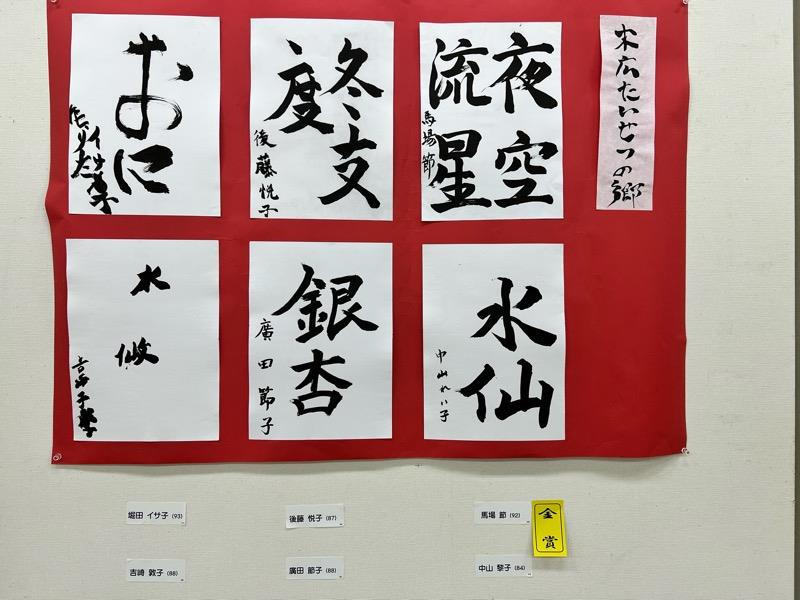 末広たいせつの郷
夜空
流星
馬場節
冬支
度
後藤悦子
おに
イサ子
水仙
中山れい子
銀杏
廣田節子
水仙
堀田 イサ子 (93)
後藤 悦子 (87)
馬場 節 (92)
金賞
吉崎 敦子 (88)
廣田 節子 (88)
中山 黎子 (84)